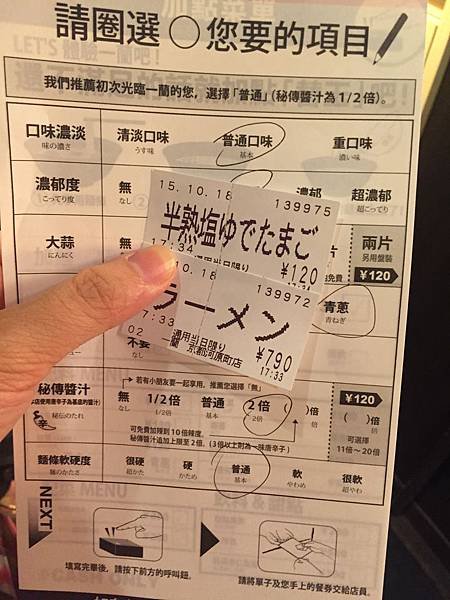 請圈選○您要的項目
我們推薦初次光臨一蘭的您，選擇「普通」（秘傳醬汁為1/2倍）。
口味濃淡 清淡口味 普通口味 重口味
味の濃さ うす味 基本 濃い味
濃郁度 無 濃郁 超濃郁
こってり度 なし 超こってり
15.10.18 139975
半熟塩ゆでたまご
17:34 当日限り ¥120
17:34
大蒜 無 兩片
にんにく 另用盤裝
¥120
10.18 139972
ラーメン
17:33 通用当日限り ¥790
一蘭 京都河原町店 17:33
青蔥
青ねぎ
02
不要
なし
秘傳醬汁 若有小朋友要一起享用，推薦您選擇「無」 ¥120
店使用唐辛子為基底的醬汁) 無 1/2倍 普通 2倍 ( )倍 ( )倍
秘伝のたれ なし 1/2倍 基本 2倍 倍 倍
可免費加辣到10倍辣度。 可選擇
秘傳醬汁追加上限至2倍。(3倍以上則為一味唐辛子) 11倍～20倍
麵條軟硬度 很硬 硬 普通 軟 很軟
麺のかたさ 超かた かため 基本 やわめ 超やわ
NEXT
填寫完畢後，請按下前方的呼叫鈕。
請將單子及您手上的餐券交給店員。